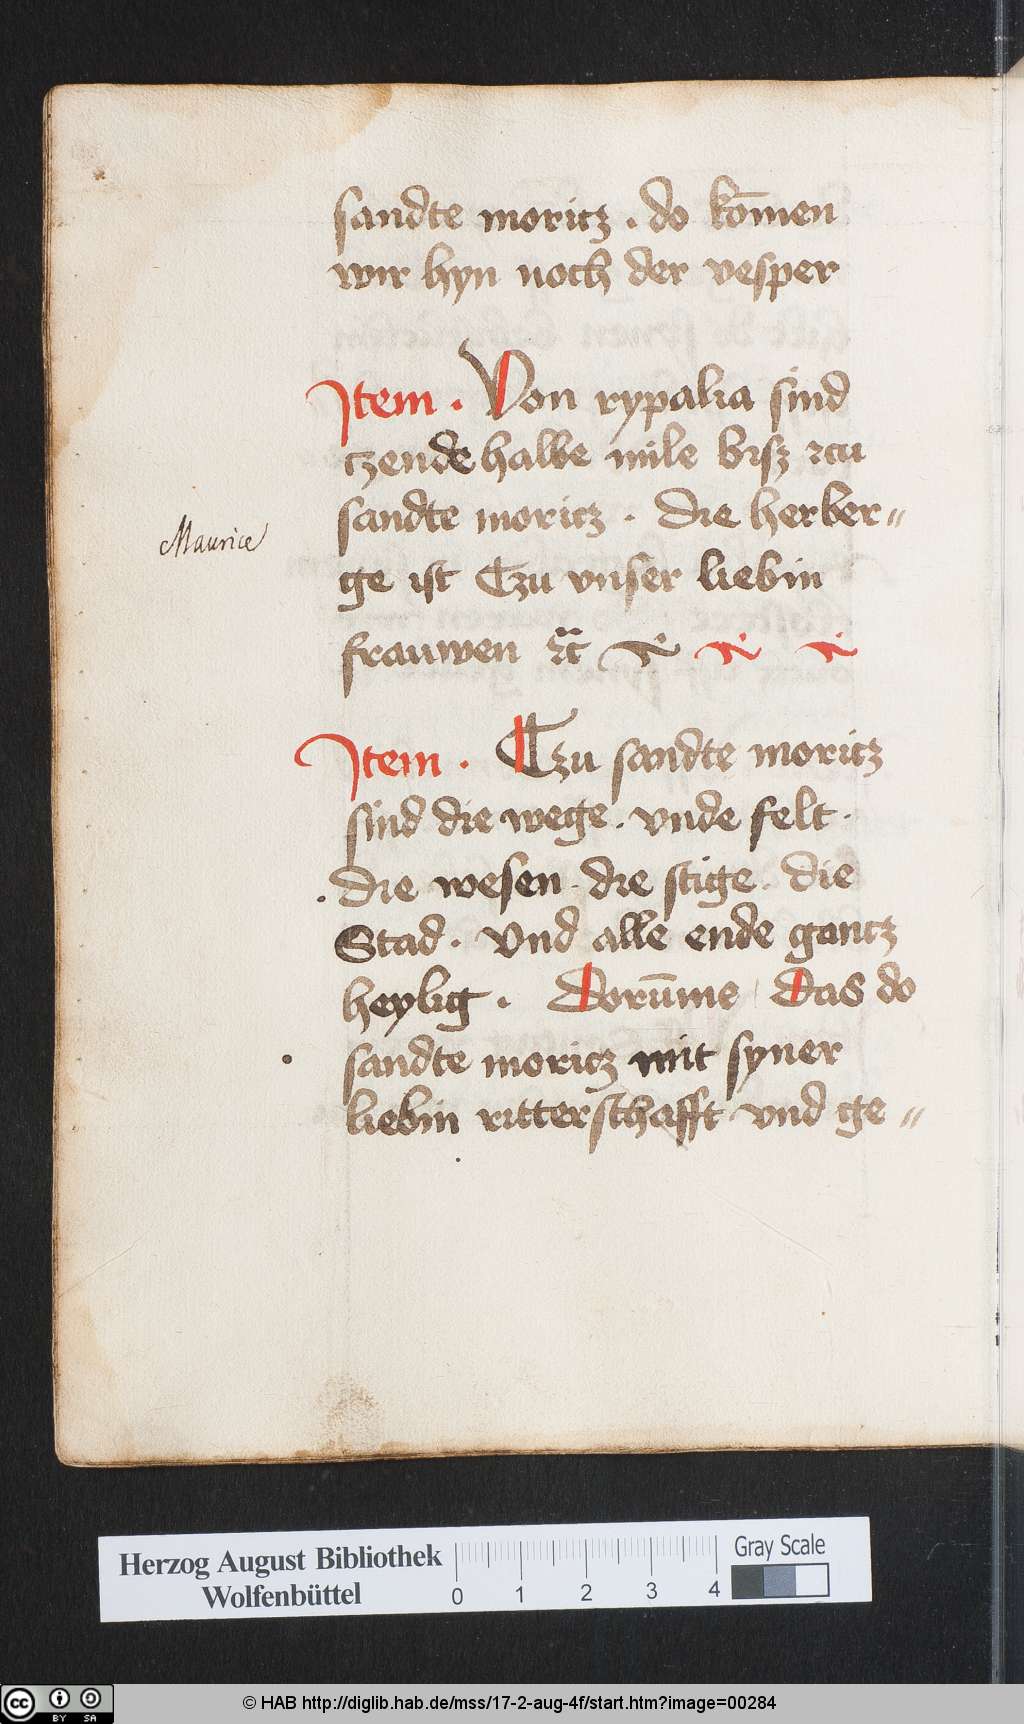 sandte moricz . do kōmen
wir hyn noch der vesper
Item . Von rypalia sind
czende halbe mile bisz zcu
sandte moricz . die herber„
Maurice
ge ist Czu vnser liebin
frauwen ꝛc̈
Item . Czu sandte moricz
sind die wege . vnde felt .
. die wesen . die stige . die
Stad . Vnd alle ende gancz
heylig . Dorūme das do
sandte moricz mit syner
liebin ritterschafft vnd ge„
Herzog August Bibliothek
Wolfenbüttel
0 1 2 3 4
Gray Scale
cc BY SA
© HAB http://diglib.hab.de/mss/17-2-aug-4f/start.htm?image=00284